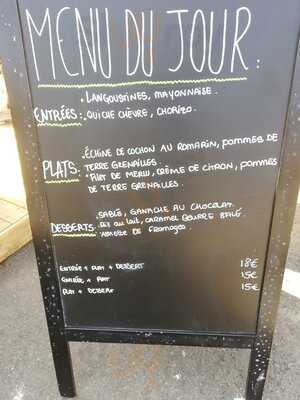 MENU DU JOUR:
. LANGOUSTINES, MAYONNAISE.
ENTRÉES: . QUICHE CHÈVRE, CHORIZO.
. ÉCHINE DE COCHON AU ROMARIN, POMMES DE
PLATS: TERRE GRENAILLES.
. FILET DE MERLU, CRÈME DE CITRON, POMMES
DE TERRE GRENAILLES.
. SABLÉ, GANACHE AU CHOCOLAT.
DESSERTS: . RIZ au lait, CARAMEL BEURRE SALÉ.
. Assiette de fromages.
ENTRÉE + PLAT + DESSERT 18€
ENTRÉE + PLAT 15€
PLAT + DESSERT 15€